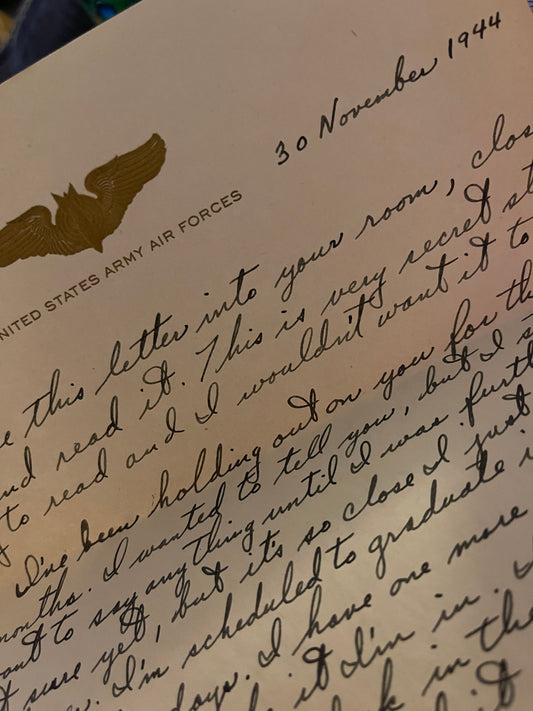 30 November 1944
UNITED STATES ARMY AIR FORCES
this letter into your room,
and read it. This is very secret
to read and I wouldn't want it to
I've been holding out on you for
months. I wanted to tell you, but I
want to say anything until I was
sure yet, but it's so close I just
I'm scheduled to graduate
days. I have one more
it I'm in.
in the
it